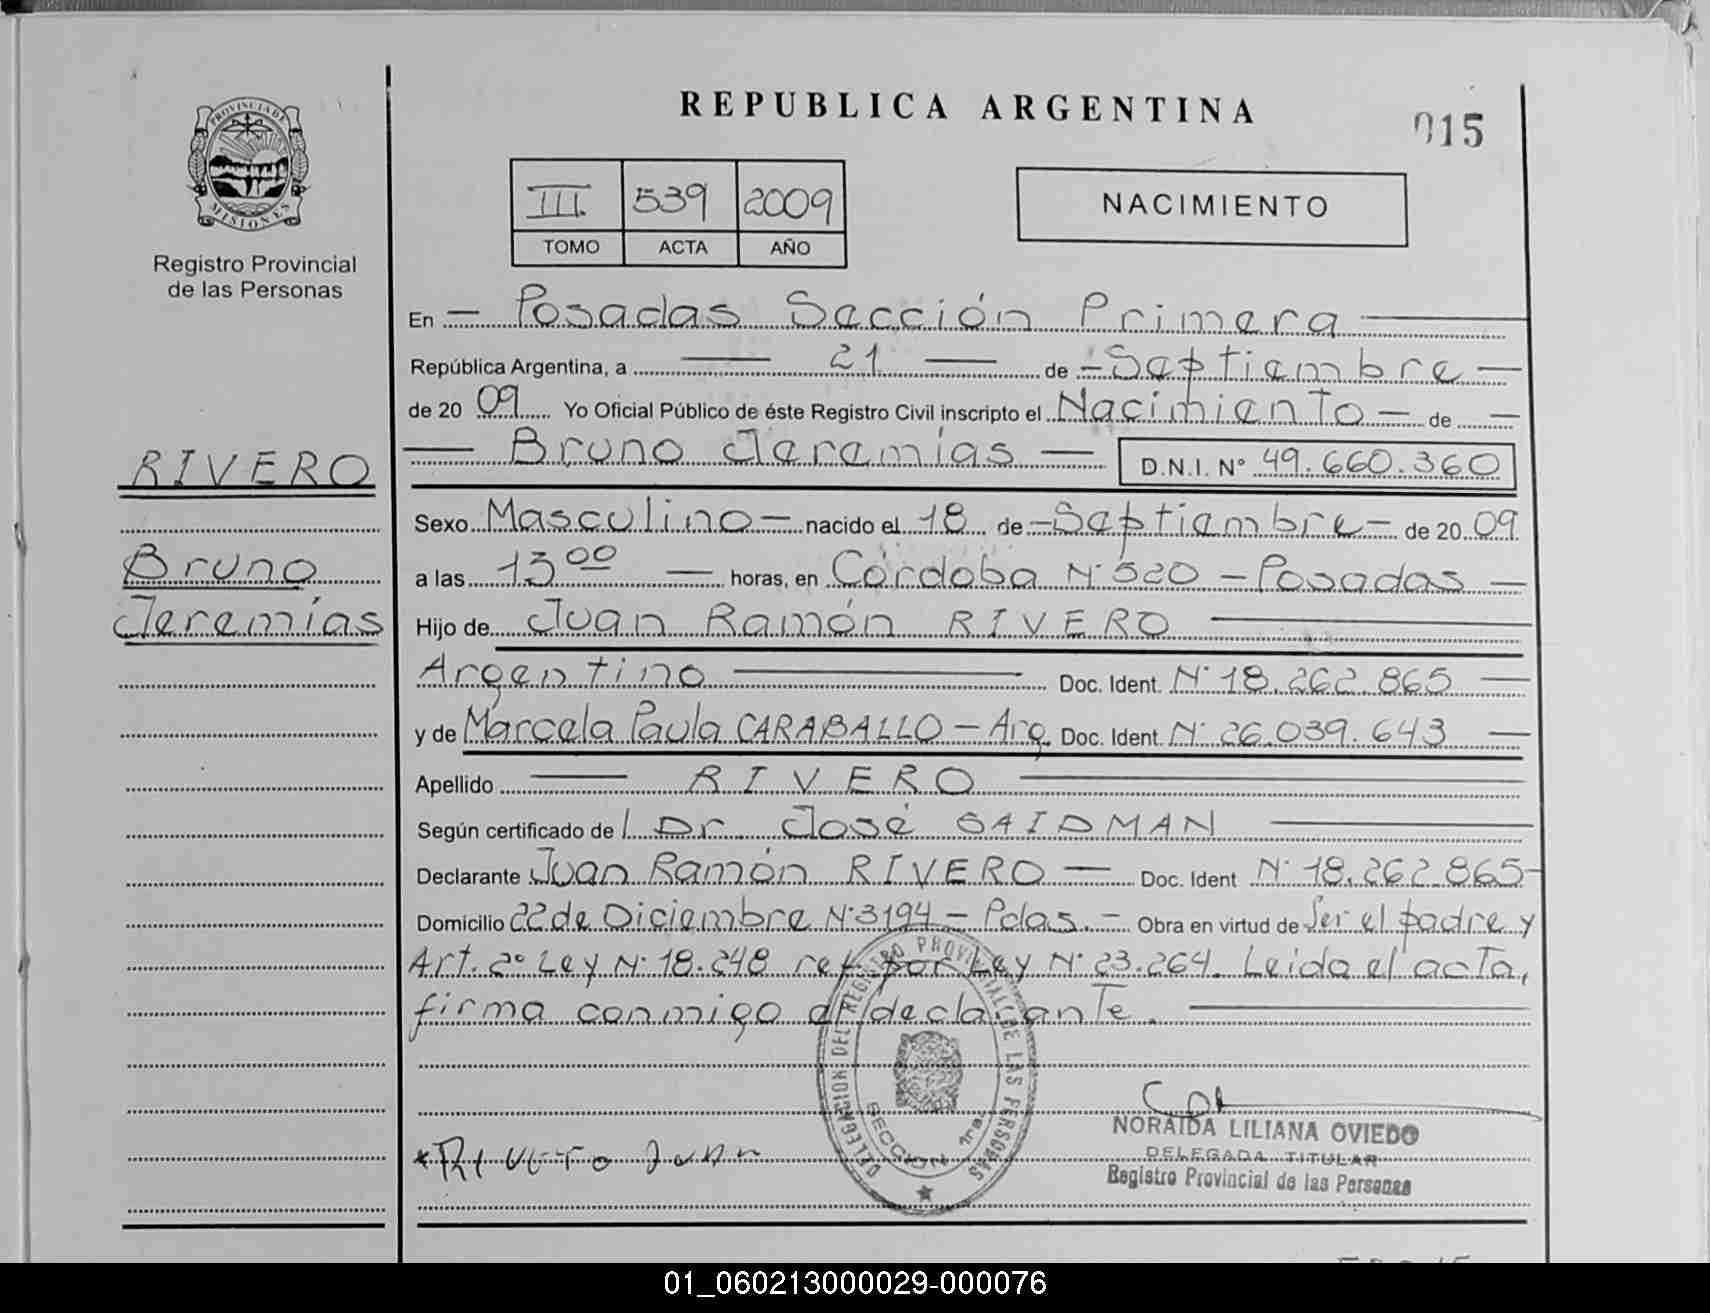 REPUBLICA ARGENTINA
015
PROVINCIA DE
MISIONES
Registro Provincial
de las Personas
III 539 2009
TOMO ACTA AÑO
NACIMIENTO
En — Posadas Sección Primera —
República Argentina, a — 21 — de — Septiembre —
de 20 09 Yo Oficial Público de éste Registro Civil inscripto el Nacimiento — de —
— Bruno Jeremías — D.N.I. N° 49.660.360
RIVERO
Bruno
Jeremías
Sexo Masculino — nacido el 18 de — Septiembre — de 20 09
a las 13 00 — horas, en Córdoba N° 520 — Posadas —
Hijo de Juan Ramón RIVERO —
Argentino — Doc. Ident. N° 18.262.865 —
y de Marcela Paula CARABALLO — Arg. Doc. Ident. N° 26.039.643 —
Apellido — RIVERO —
Según certificado de l Dr José SAIDMAN —
Declarante Juan Ramón RIVERO — Doc. Ident N° 18.262.865 —
Domicilio 22 de Diciembre N° 3194 — Pdas. — Obra en virtud de Ser el padre y
Art. 2° Ley N° 18.248 ref. por Ley N° 23.264. Leida el acta,
firma conmigo el declarante. —
DELEGACION DEL REGISTRO PROVINCIAL DE LAS PERSONAS
SECCION 1ra.
Rivero Juan
NORAIDA LILIANA OVIEDO
DELEGADA TITULAR
Registro Provincial de las Personas
01_060213000029-000076